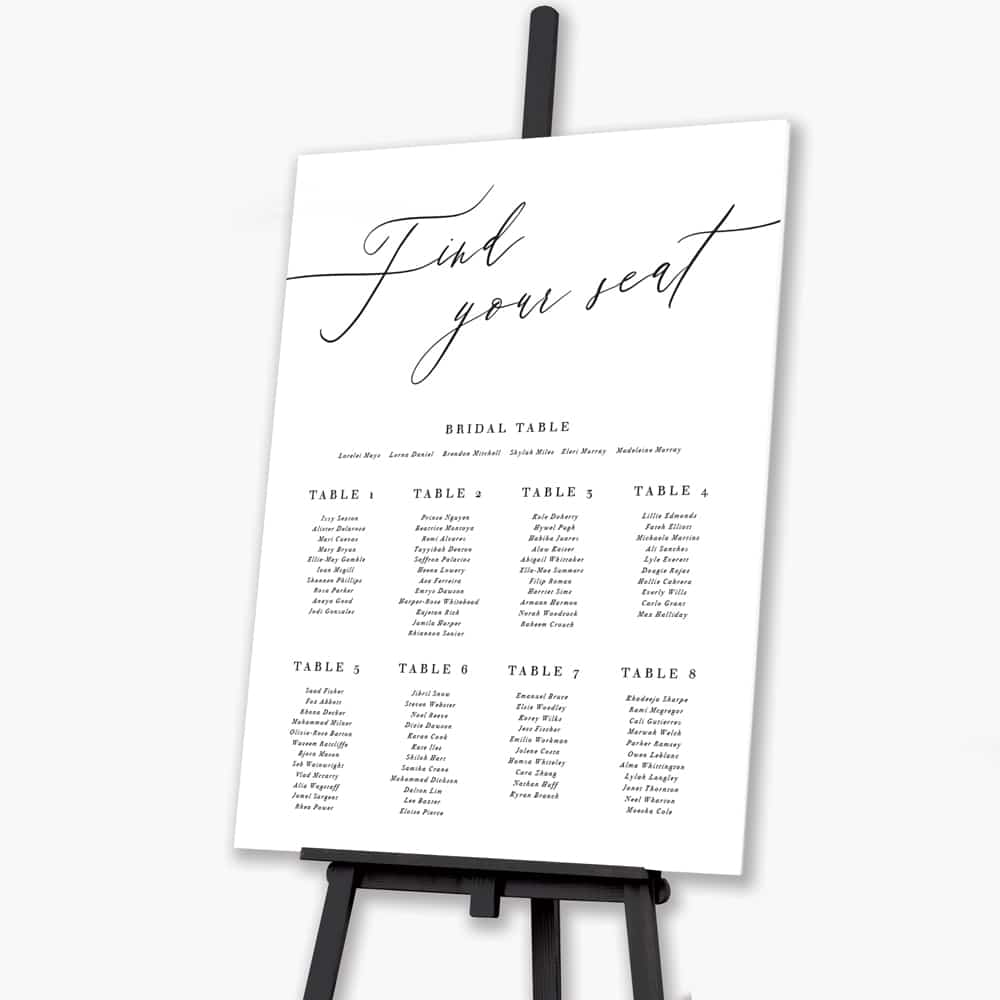 Find
your seat
BRIDAL TABLE
Lorelei Mayo Lorna Daniel Brendon Mitchell Skylah Miles Eleri Murray Madeleine Murray
TABLE 1
Izzy Sexton
Alister Delarosa
Mari Cuevas
Mary Bryan
Ellie-May Gamble
Ioan Mcgill
Shannon Phillips
Rosa Parker
Anayn Good
Jodi Gonzales
TABLE 2
Prince Nguyen
Beatrice Montoya
Romi Alvarez
Tayyibah Denton
Saffron Palacios
Heena Lowery
Asa Ferreira
Emrys Dawson
Harper-Rose Whitehead
Kajetan Rich
Jamila Harper
Rhiannon Senior
TABLE 3
Kole Doherty
Hywel Pugh
Habiba Juarez
Alaw Kaiser
Abigail Whittaker
Ella-Mae Summers
Filip Roman
Harriet Sims
Armaan Harmon
Norah Woodcock
Raheem Crouch
TABLE 4
Lillie Edmonds
Farah Elliott
Michaela Martins
Ali Sanchez
Lyle Everett
Dougie Rojas
Hollie Cabrera
Everly Wills
Carla Grant
Max Halliday
TABLE 5
Saad Fisher
Fox Abbott
Rhona Decker
Muhammad Milner
Olivia-Rose Barton
Waseem Ratcliffe
Bjorn Mason
Seb Wainwright
Vlad Mccarty
Alia Wagstaff
Jamal Sargent
Rhea Power
TABLE 6
Jibril Snow
Steven Webster
Noel Reeve
Dixie Dawson
Karan Cook
Kate Iles
Shiloh Hart
Samiha Crane
Mohammad Dickson
Dalton Lim
Leo Baxter
Eloise Pierce
TABLE 7
Emanuel Bruce
Elsie Woodley
Korey Wilks
Jess Fischer
Emilia Workman
Jolene Costa
Hamza Whiteley
Cara Zhang
Nathan Huff
Kyran Branch
TABLE 8
Khadeeja Sharpe
Rami Mcgregor
Cali Gutierrez
Marwah Welch
Parker Ramsey
Owen Leblanc
Alma Whittington
Lylah Langley
Janet Thornton
Neel Wharton
Meesha Cole